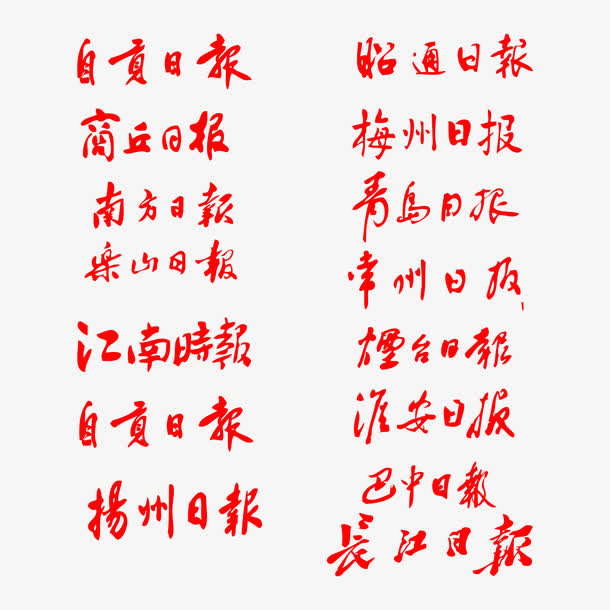 自貢日報
商丘日报
南方日報
乐山日報
江南時報
自貢日報
揚州日報
昭通日報
梅州日报
青島日报
常州日报
煙台日報
淮安日报
巴中日報
長江日報